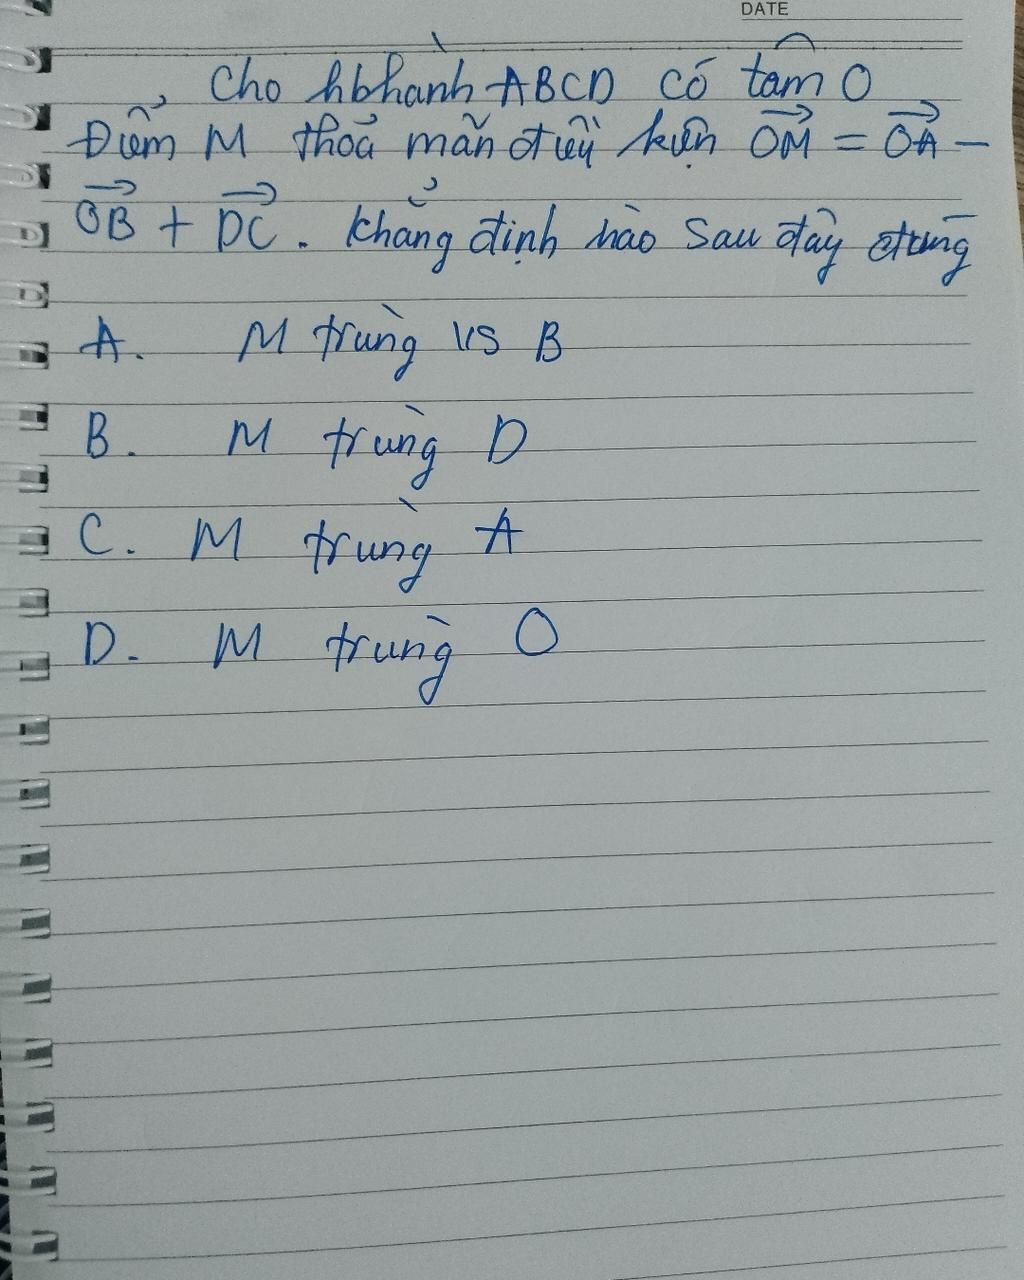 DATE
Cho hbhành ABCD có tâm O
Điểm M thoả mãn điều kiện OM = OA –
OB + DC . Khẳng định nào sau đây đúng
A. M trùng vs B
B. M trùng D
C. M trùng A
D. M trùng O